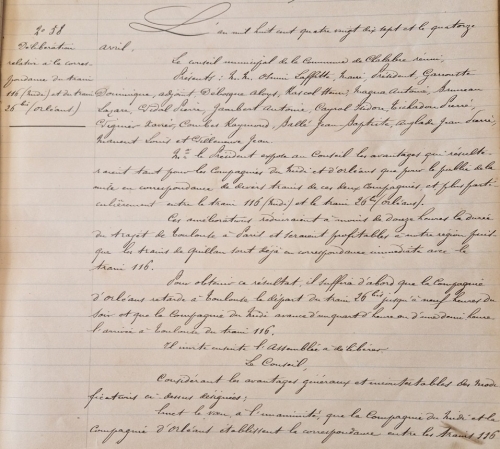 No 38
Délibération
relative à la corres-
pondance du train
116 (Midi) et du train
26 bis (Orléans)
L'an mil huit cent quatre vingt dix sept et le quatorze
avril,
Le conseil municipal de la Commune de Chalabre réuni,
Présents: M.M. Laffitte, Maire, Président, Garrouste
Dominique, adjoint, Delosque Alays, Rascol Henri, Magna Antoine, Bruneau
Lazare, Vidal Pierre, Jambert Antoine, Cayrol Isidore, Pechadou Pierre,
Tignier Xavier, Combes Raymond, Salle Jean Baptiste, Anglade Jean Pierre,
Manent Louis et Villeneuve Jean.
Mr le Président expose au Conseil les avantages qui résulte-
raient tant pour les Compagnies du Midi et d'Orléans que pour le public de la
mise en correspondance de divers trains de ces deux Compagnies et plus parti-
culièrement entre le train 116 (Midi) et le train 26 bis (Orléans).
Ces améliorations réduiraient à moins de douze heures la durée
du trajet de Toulouse à Paris et seraient profitables à notre région puis
que les trains de Quillan sont déjà en correspondance immédiate avec le
train 116.
Pour obtenir ce résultat, il suffira d'abord que la Compagnie
d'Orléans retarde à Toulouse le départ du train 26 bis jusqu'à neuf heures du
soir et que la Compagnie du Midi avance d'un quart d'heure ou d'une demi heure
l'arrivée à Toulouse du train 116.
Il invite ensuite l'Assemblée à délibérer.
Le Conseil,
Considérant les avantages généraux et incontestables des modi
fications ci-dessus désignées;
Émet le vœu, à l'unanimité, que la Compagnie du Midi et la
Compagnie d'Orléans établissent la correspondance entre les trains 116